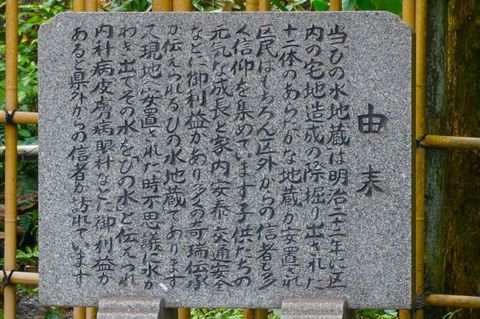 由来
当ひの水地蔵は明治二十二年に区
内の宅地造成の際掘り出された
十二体のあらたかな地蔵が安置され
区民はもちろん区外からの信者も多
く信仰を集めています子供たちの
元気な成長と家内安泰交通安全
などに御利益があり多くの奇瑞伝承
が伝えられるひの水地蔵であります
又現地に安置された時不思議に水が
わき出てその水を「ひの水」と伝えられ
内科病皮膚病眼科などに御利益が
あると県外からの信者が訪れています